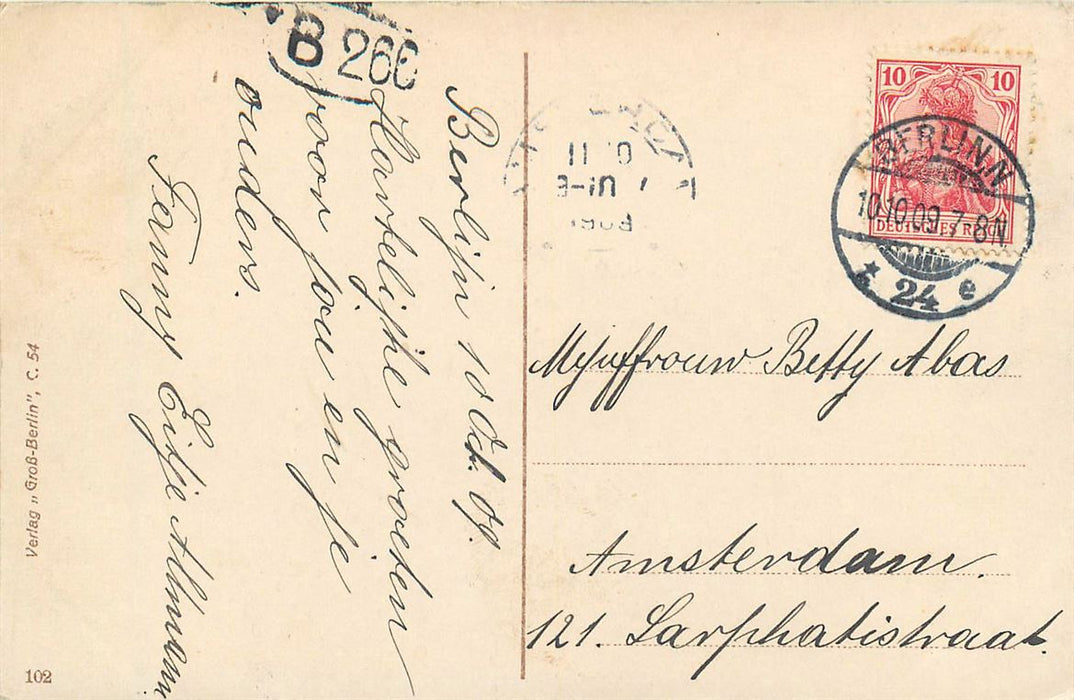 B 266
Berlijn 10 Oct. 09.
Hartelijke groeten
voor jou en je
ouders.
Fanny Eitje
10 10
DEUTSCHES REICH
BERLIN N
10.10.09.7-8N
* 24 e
Mejuffrouw Betty Abas
Amsterdam.
121. Sarphatistraat
Verlag „Groß-Berlin", C. 54
102